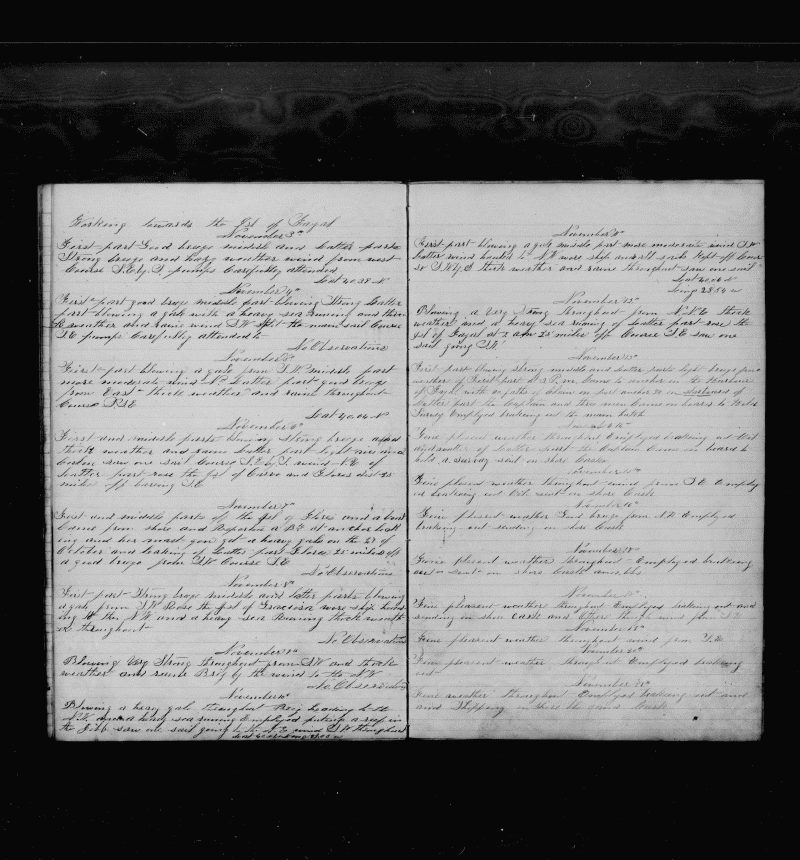 Working towards the Ist of Fayal
November 3rd
First part Good breze middle and latter parts
Strong breze and hazy weather wind from west
Course S.E.by.S pumps Carefully attended
Lat 40.38 N
November 4th
First part good breze middle part blowing Strong latter
part blowing a gale with a heavy sea running and thick
weather and raine wind S.W the main sail Course
S.E pumps Carefully attended to
No Observations
November 5th
First part blowing a gale from S.W middle part
more moderate wind latter part good breze
from East thick weather and raine throughout
Course S.S.E
Lat 40.04 N
November 6th
First and middle parts blowing Strong breze and
thick weather and raine latter part light
saw one sail Course S.E.by.S wind N.E
latter part rose the Ist of Corvo and Flores dist 25
miles off bearing S.E
November 7th
First and middle parts off the Ist of Flores and a boat
Came from shore and reported a at anchor leak
ing and her mast gon got a heavy gale on the 27 of
October and leaking latter part Flores 25 miles off
a good breze from S.W Course S.E
No Observations
November 8th
First part Strong breze middle and latter parts blowing
a gale from S.W Rose the Ist of Graciosa wore ship head
ing to the N.W and a heavy sea Running thick weath
er throughout
No Observations
November 9th
Blowing very Strong throughout from S.W and thick
weather and raine Brig by the wind to the N.W
No Observations
November 10th
Blowing a heavy gale throughout Brig heading to the
N.W. and a heavy sea running Employed puting a reef in
the Jibb saw one sail going to the N.E wind S.W throughout
November 11th
First part blowing a gale middle part more moderate wind S.W
latter wind hauled to N.W wore ship and all sail Kept off Cour
se S.W.by.S thick weather and raine throughout saw one sail
Lat 40.06 N
Long 28.54 W
November 12th
Blowing a very Strong throughout from N.N.E thick
weather and a heavy sea running latter part rose the
Ist of Fayal at 2 A.M 25 miles off Course S.E saw one
sail going S.W.
November 13th
First part blowing strong middle and latter parts light breze fine
weather first part at 3 P.M Came to anchor in the Harbour
of Fayal with 60 faths of Chain on port anchor 30 on starboard
latter part the Captain and two men Came on board to hold a
Survey Employed braking out the main hatch
November 14th
Fine plesent weather throughout Employed braking out Oil
and water latter part the Captain Came on board to
hold a survey sent on shore Casks
November 15th
Fine plesent weather throughout wind from S.E Employ
ed braking out Oil sent on shore Casks
November 16th
Fine plesent weather breze from N.E Employed
braking out sending on shore Casks
November 17th
Fine plesent weather throughout Employed braking
out sent on shore Casks
November 18th
Fine plesent weather throughout Employed braking out and
sending on shore Casks and
November 19th
Fine plesent weather throughout wind from S.E
November 20th
Fine plesent weather throughout Employed braking
out
November 21st
Fine weather throughout Employed braking out and
and Shipping on shore the Casks